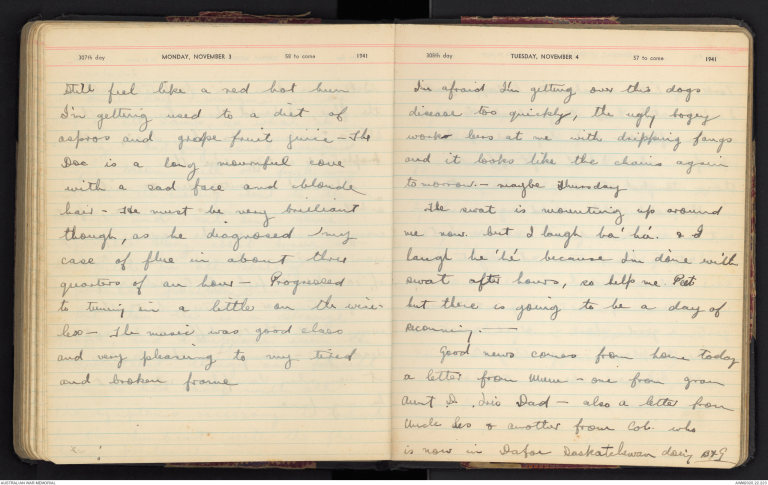 307th day MONDAY, NOVEMBER 3 58 to come 1941
Still feel like a red hot bun
I'm getting used to a diet of
aspros and grape fruit juice - The
Doc is a long mournful cove
with a sad face and blonde
hair - He must be very brilliant
though, as he diagnosed my
case of flue in about three
quarters of an hour - Progressed
to tuning in a little on the wire-
less - The music was good class
and very pleasing to my tired
and broken frame
308th day TUESDAY, NOVEMBER 4 57 to come 1941
I'm afraid I'm getting over this dogs
disease too quickly, the ugly bogey
work leers at me with dripping fangs
and it looks like the chains again
tomorrow. - maybe Thursday
The swat is mounting up around
me now. but I laugh ha' ha'. & I
laugh he' he' because I'm done with
swat after hours, so help me. Pest
but there is going to be a day of
reconning. -
Good news comes from home today
a letter from Mum - one from gran
Aunt D. Dad - also a letter from
Uncle Les & another from Cob. who
is now in Dafoe Saskatchewan doing B & G
AUSTRALIAN WAR MEMORIAL